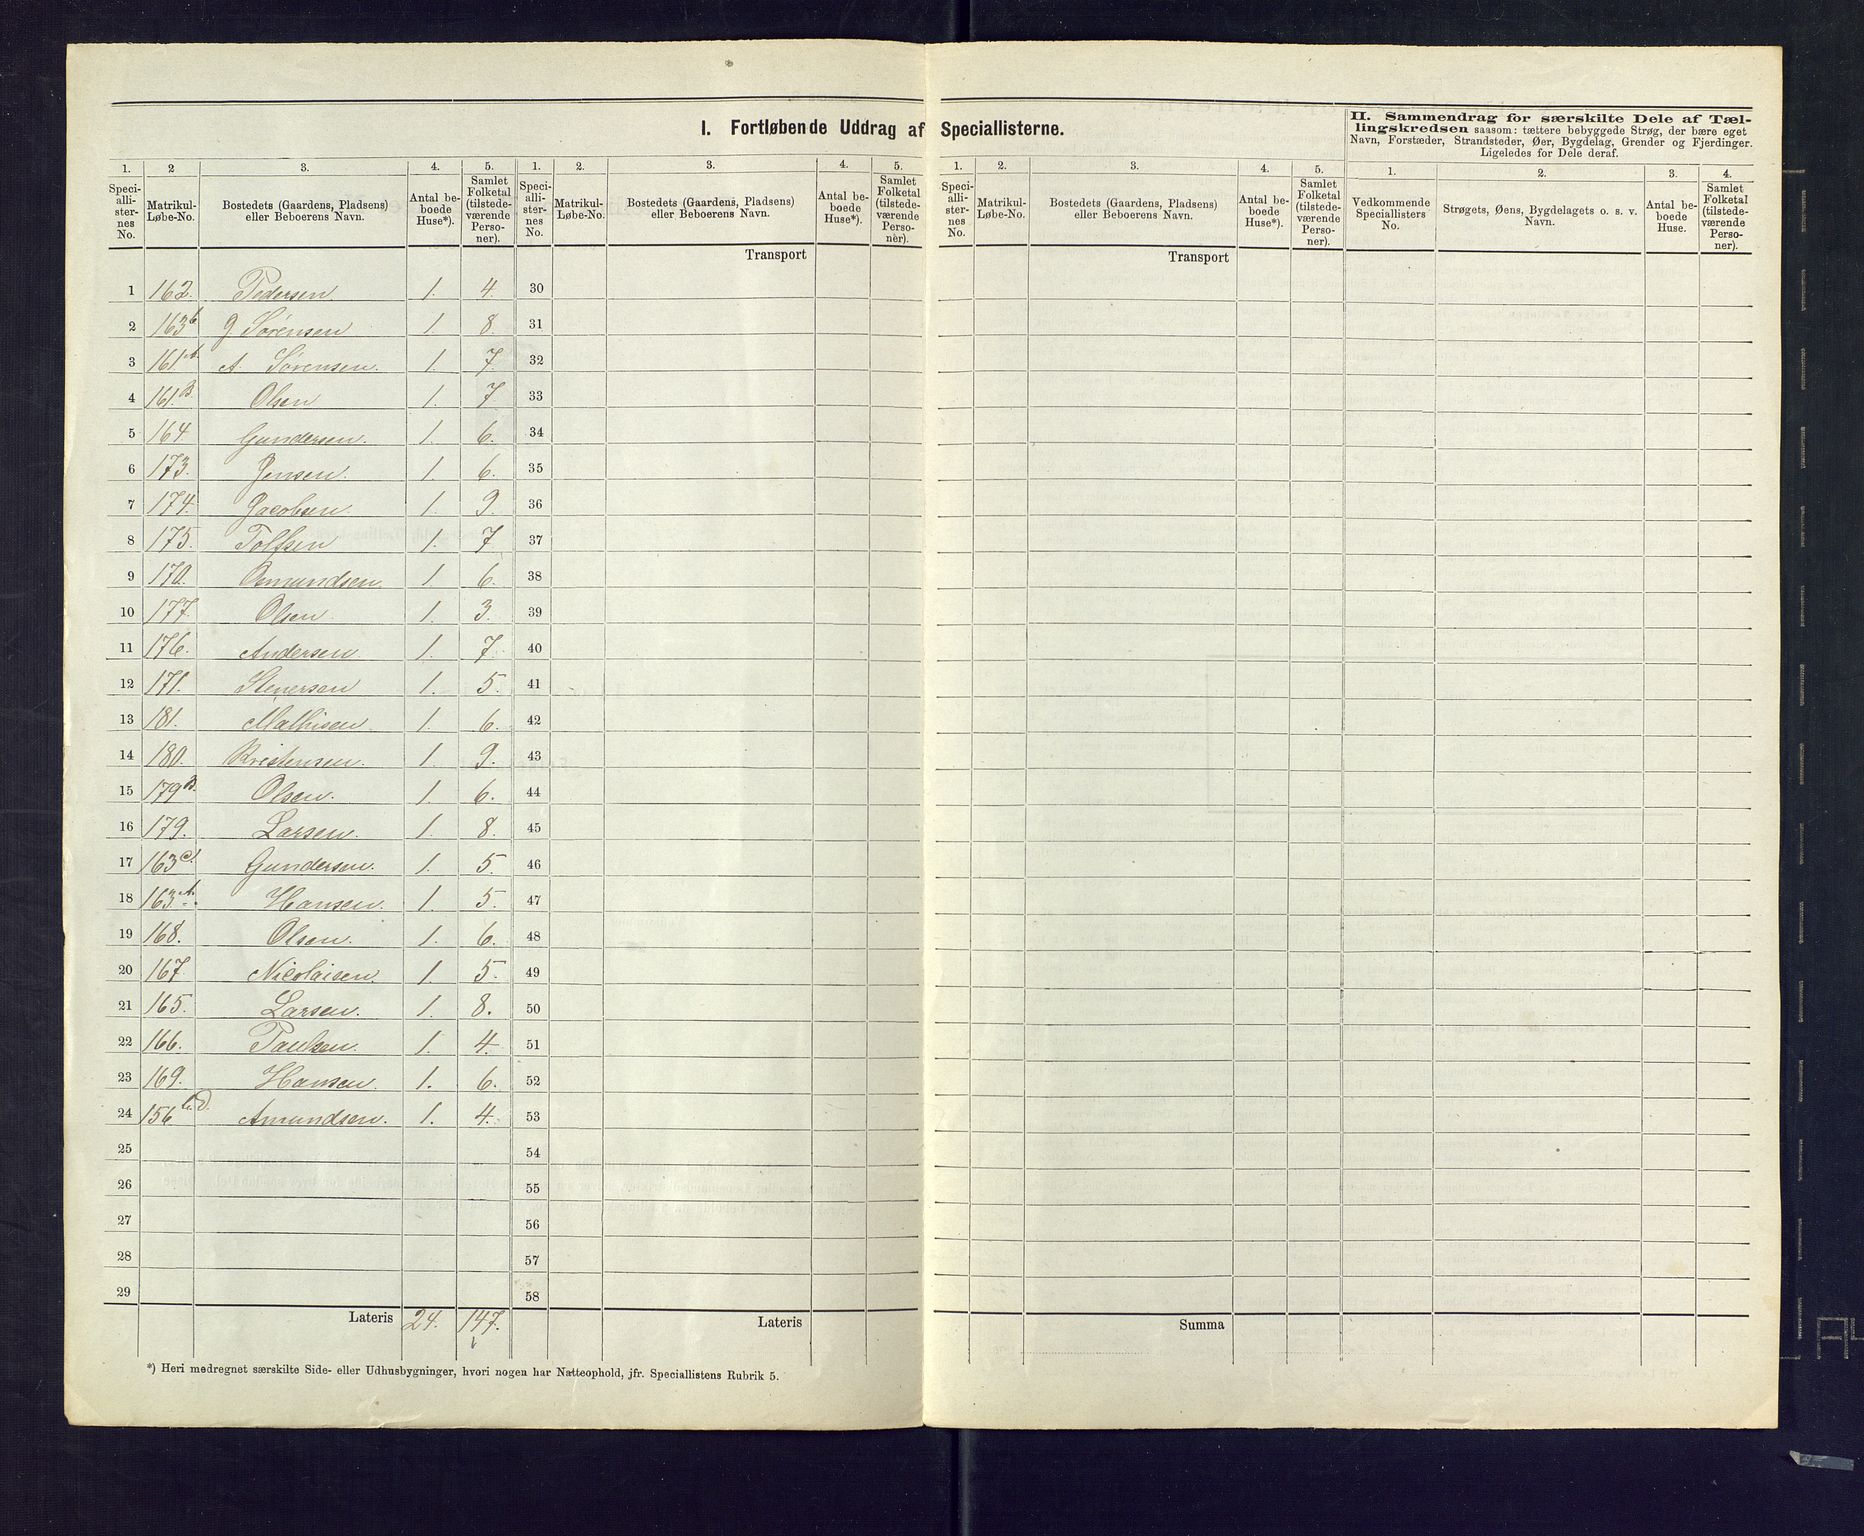 I. Fortløbende Uddrag af Speciallisterne.
II. Sammendrag for særskilte Dele af Tæl-
lingskredsen saasom: tættere bebyggede Strøg, der bære eget
Navn, Forstæder, Strandsteder, Øer, Bygdelag, Grender og Fjerdinger.
Ligeledes for Dele deraf.
1. 2 3. 4. 5. 1. 2. 3. 4. 5. 1. 2. 3. 4. 5. 1. 2. 3. 4.
Speci-alli-ster-nes No. Matrikul-Løbe-No. Bostedets (Gaardens, Pladsens) eller Beboerens Navn. Antal be-boede Huse*). Samlet Folketal (tilstede-værende Perso-ner).
Speci-alli-ster-nes No. Matrikul-Løbe-No. Bostedets (Gaardens, Pladsens) eller Beboerens Navn. Antal be-boede Huse*). Samlet Folketal (tilstede-værende Perso-ner).
Speci-alli-ster-nes No. Matrikul-Løbe-No. Bostedets (Gaardens, Pladsens) eller Beboerens Navn. Antal be-boede Huse*). Samlet Folketal (tilstede-værende Perso-ner).
Vedkommende Speciallisters No. Strøgets, Øens, Bygdelagets o. s. v. Navn. Antal be-boede Huse. Samlet Folketal (tilstede-værende Perso-ner).
Transport Transport
1 162. Pedersen 1. 4. 30
2 163b G Sørensen 1. 8. 31
3 161A. A. Sørensen. 1. 7. 32
4 161.B. Olsen 1. 7. 33
5 164 Gundersen. 1. 6. 34
6 173. Jensen. 1. 6. 35
7 174. Jacobsen 1. 9. 36
8 175. Tolfsen 1. 7. 37
9 170. 1. 6. 38
10 177. Olsen 1. 3. 39
11 176. Andersen 1. 7. 40
12 171. Stenersen 1. 5. 41
13 181. Mathisen 1. 6. 42
14 180. Kristensen. 1. 9. 43
15 179B. Olsen. 1. 6. 44
16 179. Larsen. 1. 8. 45
17 163c. Gundersen. 1. 5. 46
18 163A. Hansen. 1. 5. 47
19 168. Olsen. 1. 6. 48
20 167. Nicolaisen. 1. 5. 49
21 165. Larsen. 1. 8. 50
22 166. Paulsen. 1. 4. 51
23 169. Hansen. 1. 6. 52
24 156 Amundsen. 1. 4. 53
25 54
26 55
27 56
28 57
29 58
Lateris 24. 147. Lateris Summa
*) Heri medregnet særskilte Side- eller Udhusbygninger, hvori nogen har Natteophold, jfr. Speciallistens Rubrik 5.